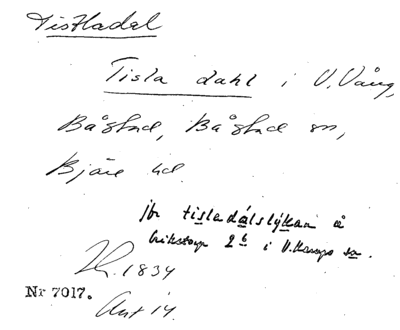 Tistladal
Tisla dahl i V. Vång,
Båstad, Båstad sn,
Bjäre hd
jfr tisladálslýkan å
Eriksstorp 2 i V. Karups sn.
1834
Nr 7017.
Art 14.